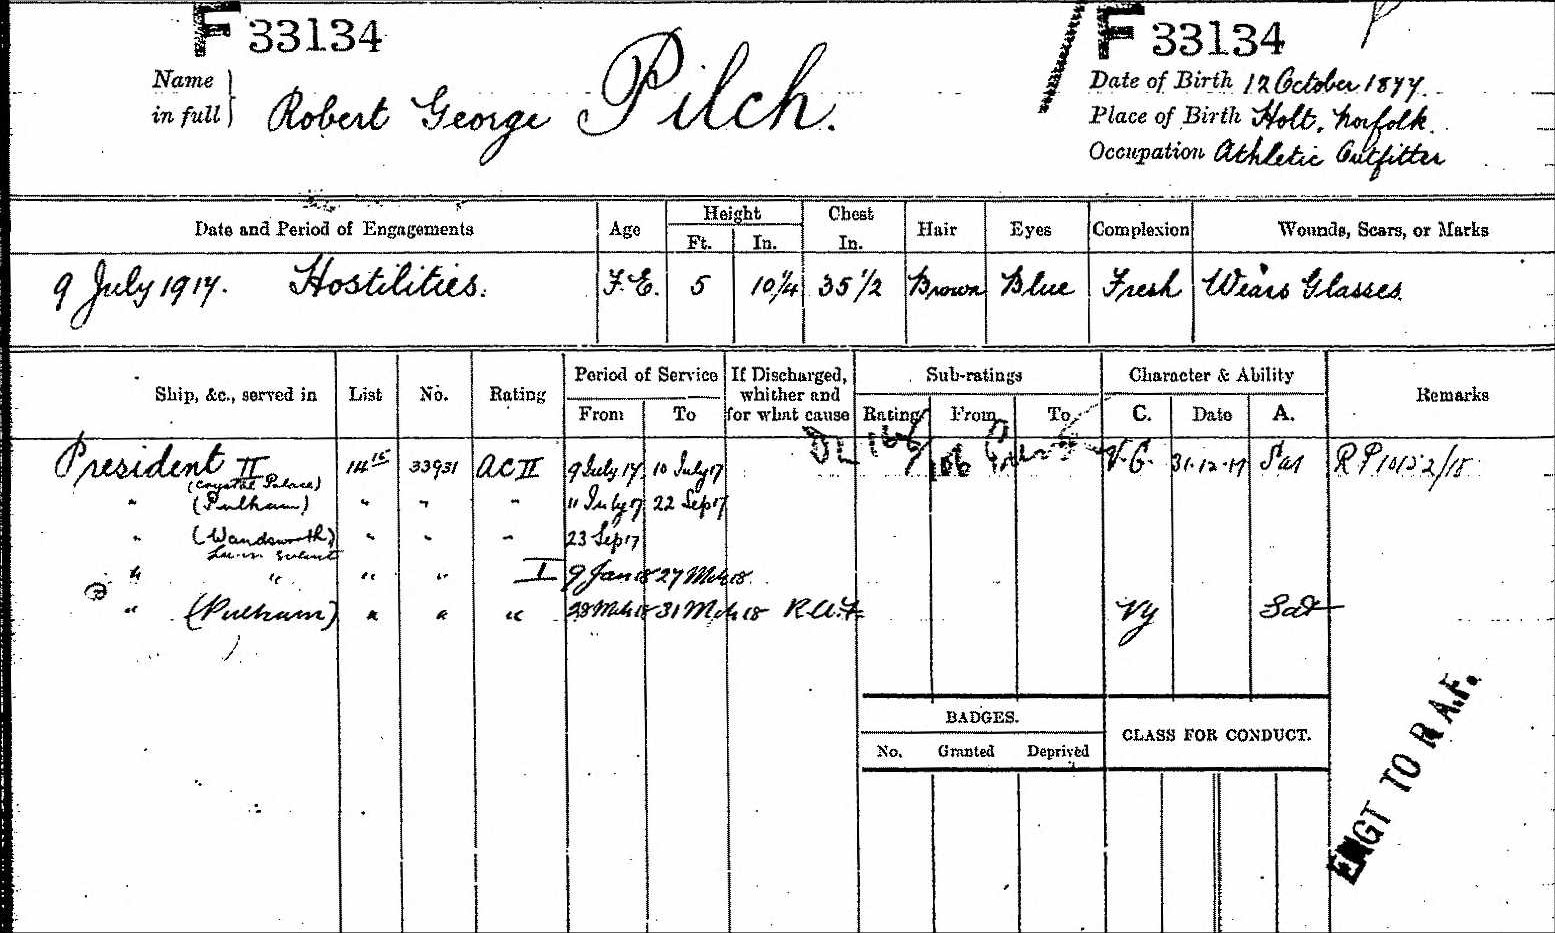 F 33134
F 33134
Name in full } Robert George Pilch.
Date of Birth 12 October 1877.
Place of Birth Holt, Norfolk.
Occupation Athletic Outfitter
Date and Period of Engagements Age Height Ft. In. Chest In. Hair Eyes Complexion Wounds, Scars, or Marks
9 July 1917. Hostilities. F.E. 5 10¼ 35½ Brown Blue Fresh Wears Glasses.
Ship, &c., served in List No. Rating Period of Service From To If Discharged, whither and for what cause Sub-ratings Rating From To Character & Ability C. Date A. Remarks
President II 14 15 33931 AC II 9 July 17 10 July 17 V.G. 31.12.17 Sat RP 10152/18
(Crystal Palace)
" (Pulham) " " " 11 July 17 22 Sep 17
" (Wandsworth) " " " 23 Sep 17
" " " " I 9 Jan 18 27 Mch 18
" (Pulham) " " " 28 Mch 18 31 Mch 18 R.A.F. VG Sat
BADGES.
No. Granted Deprived
CLASS FOR CONDUCT.
ENGT TO R A.F.